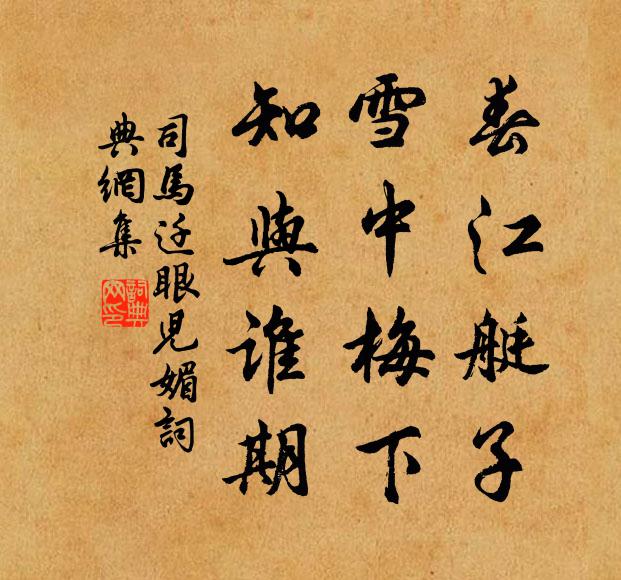 春江艇子
雪中梅下
知與誰期
司馬迁眼児媚詞
典網集
詞典
网印